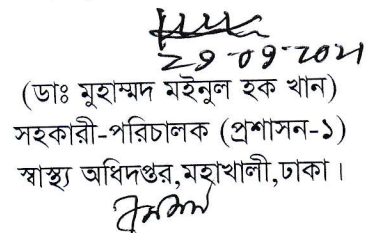 29-09-2021
(ডাঃ মুহাম্মদ মইনুল হক খান)
সহকারী-পরিচালক (প্রশাসন-১)
স্বাস্থ্য অধিদপ্তর,মহাখালী,ঢাকা।